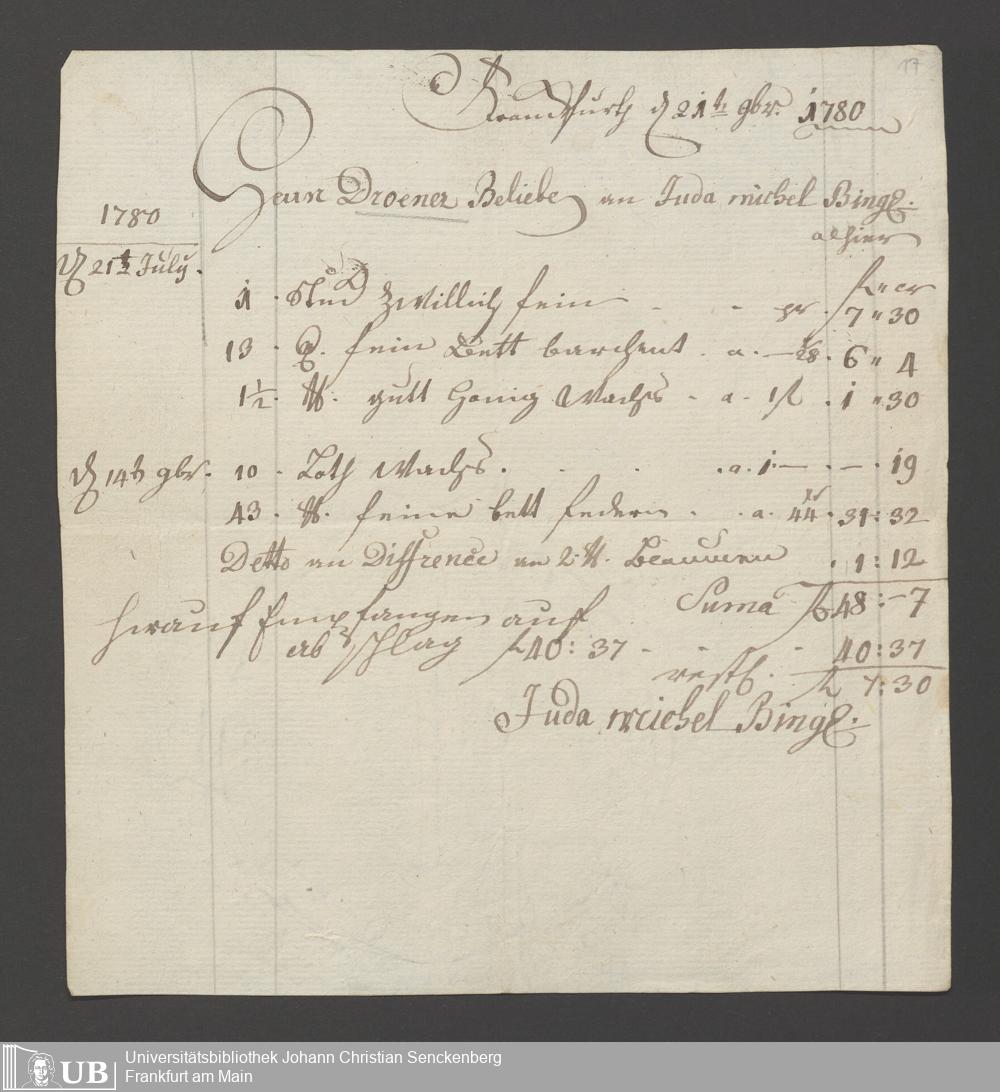 17
Franckfurth d 21t 9br. 1780
Herrn Droener Beliebe an Juda michel Bing
alhier
1780
d 21t July.
fl " cr
1 Stuck Zwillich fein - - pr 7 " 30
13 . fein Bett barchent . a. — 28. 6 " 4
1½ . ℔. gutt Honig Wachs . a . 1 fl . 1 " 30
d 14t 9br. 10 . Loth Wachs . . . . a . 1 — . — . 19
43 . ℔. feine bett federn . . a . 44 . 31 : 32
Detto an Diffrence an 2 ℔. . 1 : 12
Suma fl 48 : - 7
hirauf Empfangen auf
abschlag fl 40 : 37 - - - 40 : 37
rest . fl 7 : 30
Juda michel Bing
UB
Universitätsbibliothek Johann Christian Senckenberg
Frankfurt am Main